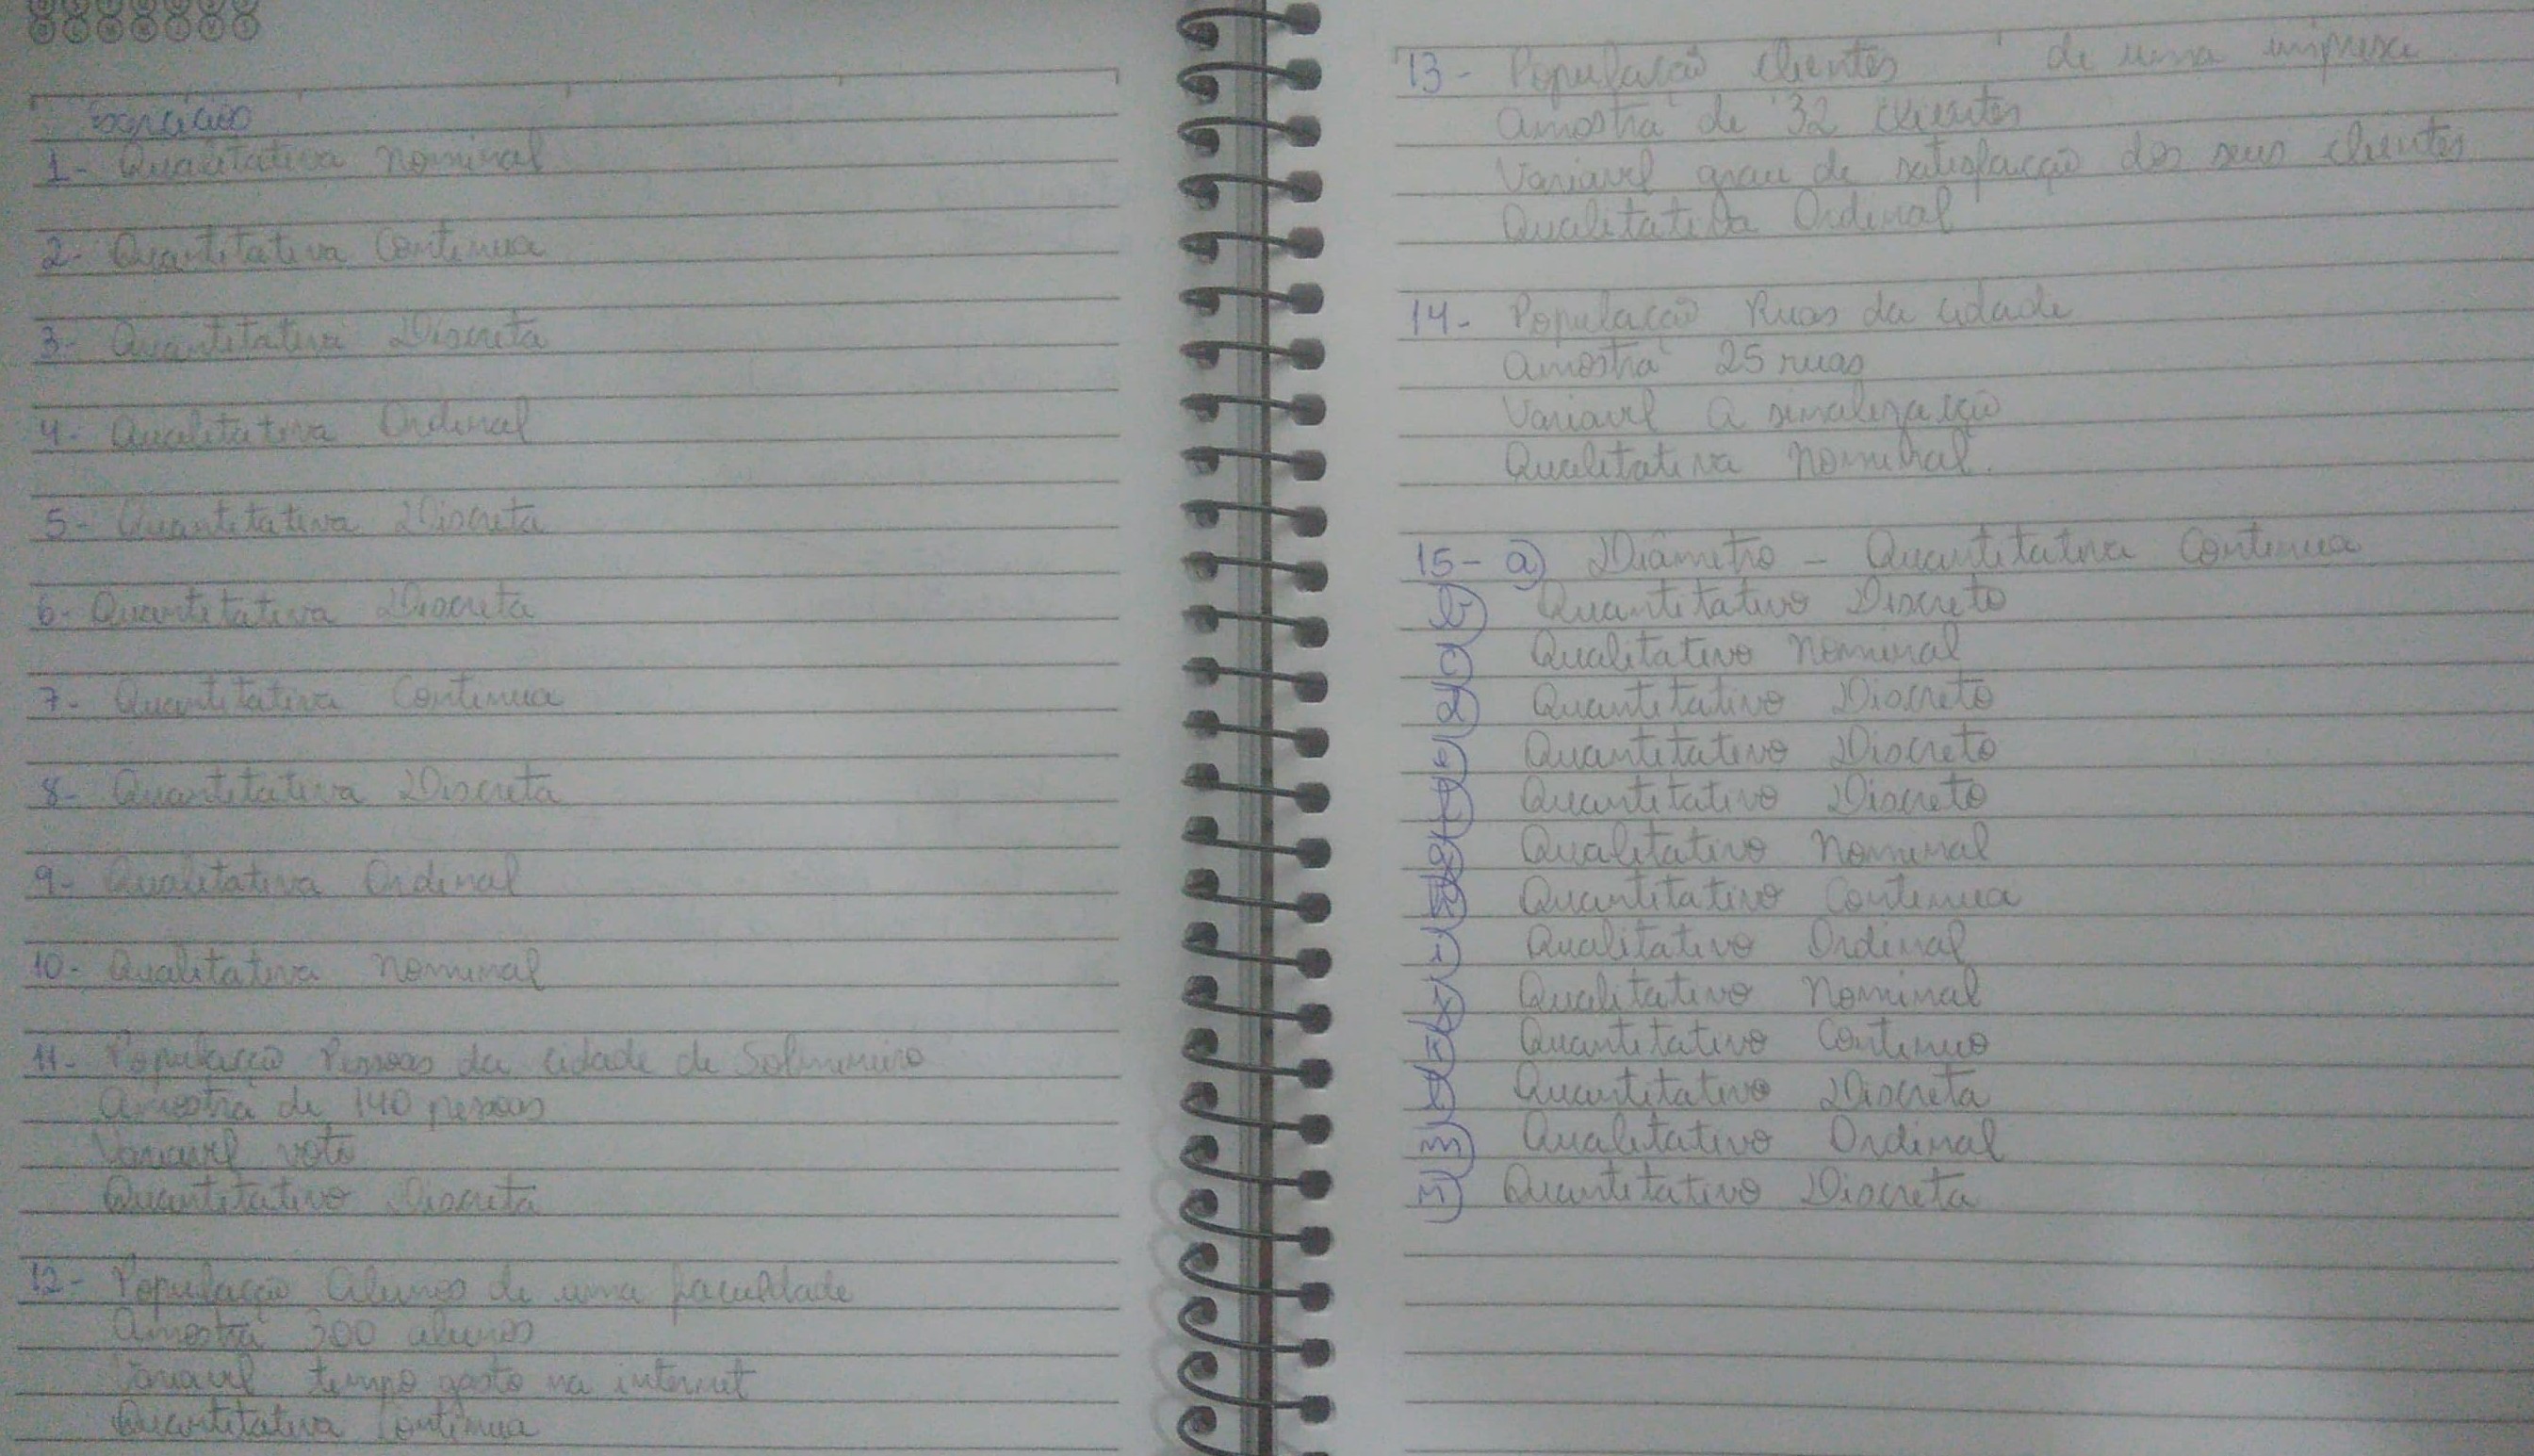 Exercicio
1- Qualitativa Nominal
2- Quantitativa Continua
3- Quantitativa Discreta
4- Qualitativa Ordinal
5- Quantitativa Discreta
6- Quantitativa Discreta
7- Quantitativa Continua
8- Quantitativa Discreta
9- Qualitativa Ordinal
10- Qualitativa Nominal
11- População Pessoas da cidade de
Amostra de 140 pessoas
Variavel voto
Quantitativo Discreta
12- População Alunos de uma faculdade
Amostra 300 alunos
Variavel tempo gasto na internet
Quantitativa Continua
13- População clientes de uma impresa
Amostra de 32 clientes
Variavel grau de satisfacção dos seus clientes
Qualitativa Ordinal
14- População Ruas da cidade
Amostra 25 ruas
Variavel a sinalização
Qualitativa Nominal.
15- a) Diâmetro - Quantitativa Continua
b) Quantitativo Discreto
c) Qualitativo Nominal
d) Quantitativo Discreto
e) Quantitativo Discreto
f) Quantitativo Discreto
g) Qualitativo Nominal
Quantitativo Continua
i) Qualitativo Ordinal
Qualitativo Nominal
Quantitativo Continuo
Quantitativo Discreta
m) Qualitativo Ordinal
n) Quantitativo Discreta